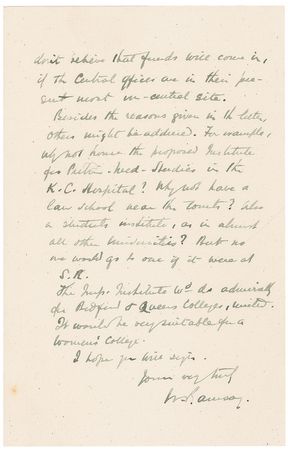 don't believe that funds will come in,
if the Central offices are in their pre-
sent most un-central site.
Besides the reasons given in the letter,
others might be adduced. For example,
why not house the proposed Institute
for Prelim. Med. Studies in the
K. C. Hospital? Why not have a
law school near the Courts? Also
a students institute, as in almost
all other Universities? But no
one would go to one if it were at
S.K.
The Imp. Institute wd. do admirably
for Bedford & Queens Colleges, united.
It would be very suitable for a
Women's College.
I hope you will sign.
Yours very truly
W. Ramsay.